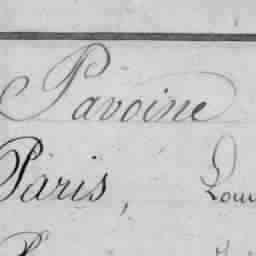 Pavoine
Paris, Lou